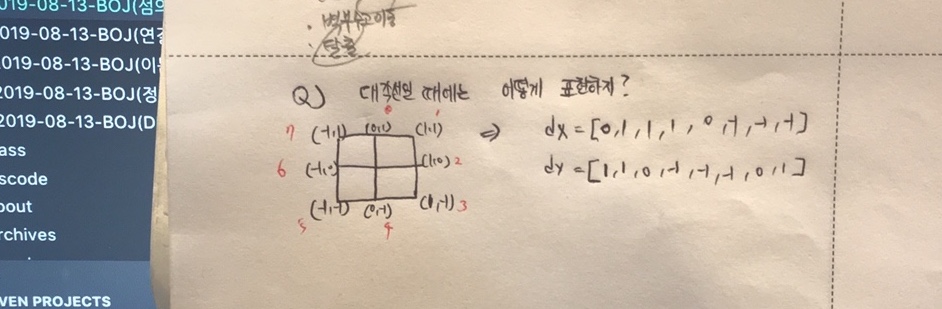 019-08-13-BOJ(섬의
019-08-13-BOJ(연결
019-08-13-BOJ(이
2019-08-13-BOJ(정
2019-08-13-BOJ(D
ass
scode
bout
rchives
VEN PROJECTS
· 벽부수고이동
· 탈출
Q) 대각선일 때에는 어떻게 표현하지?
0 1
7 (-1,1) (0,1) (1,1) ⇒ dx = [0,1,1,1,0,-1,-1,-1]
6 (-1,0) (1,0) 2 dy = [1,1,0,-1,-1,-1,0,1]
(-1,-1) (0,-1) (1,-1) 3
5 4